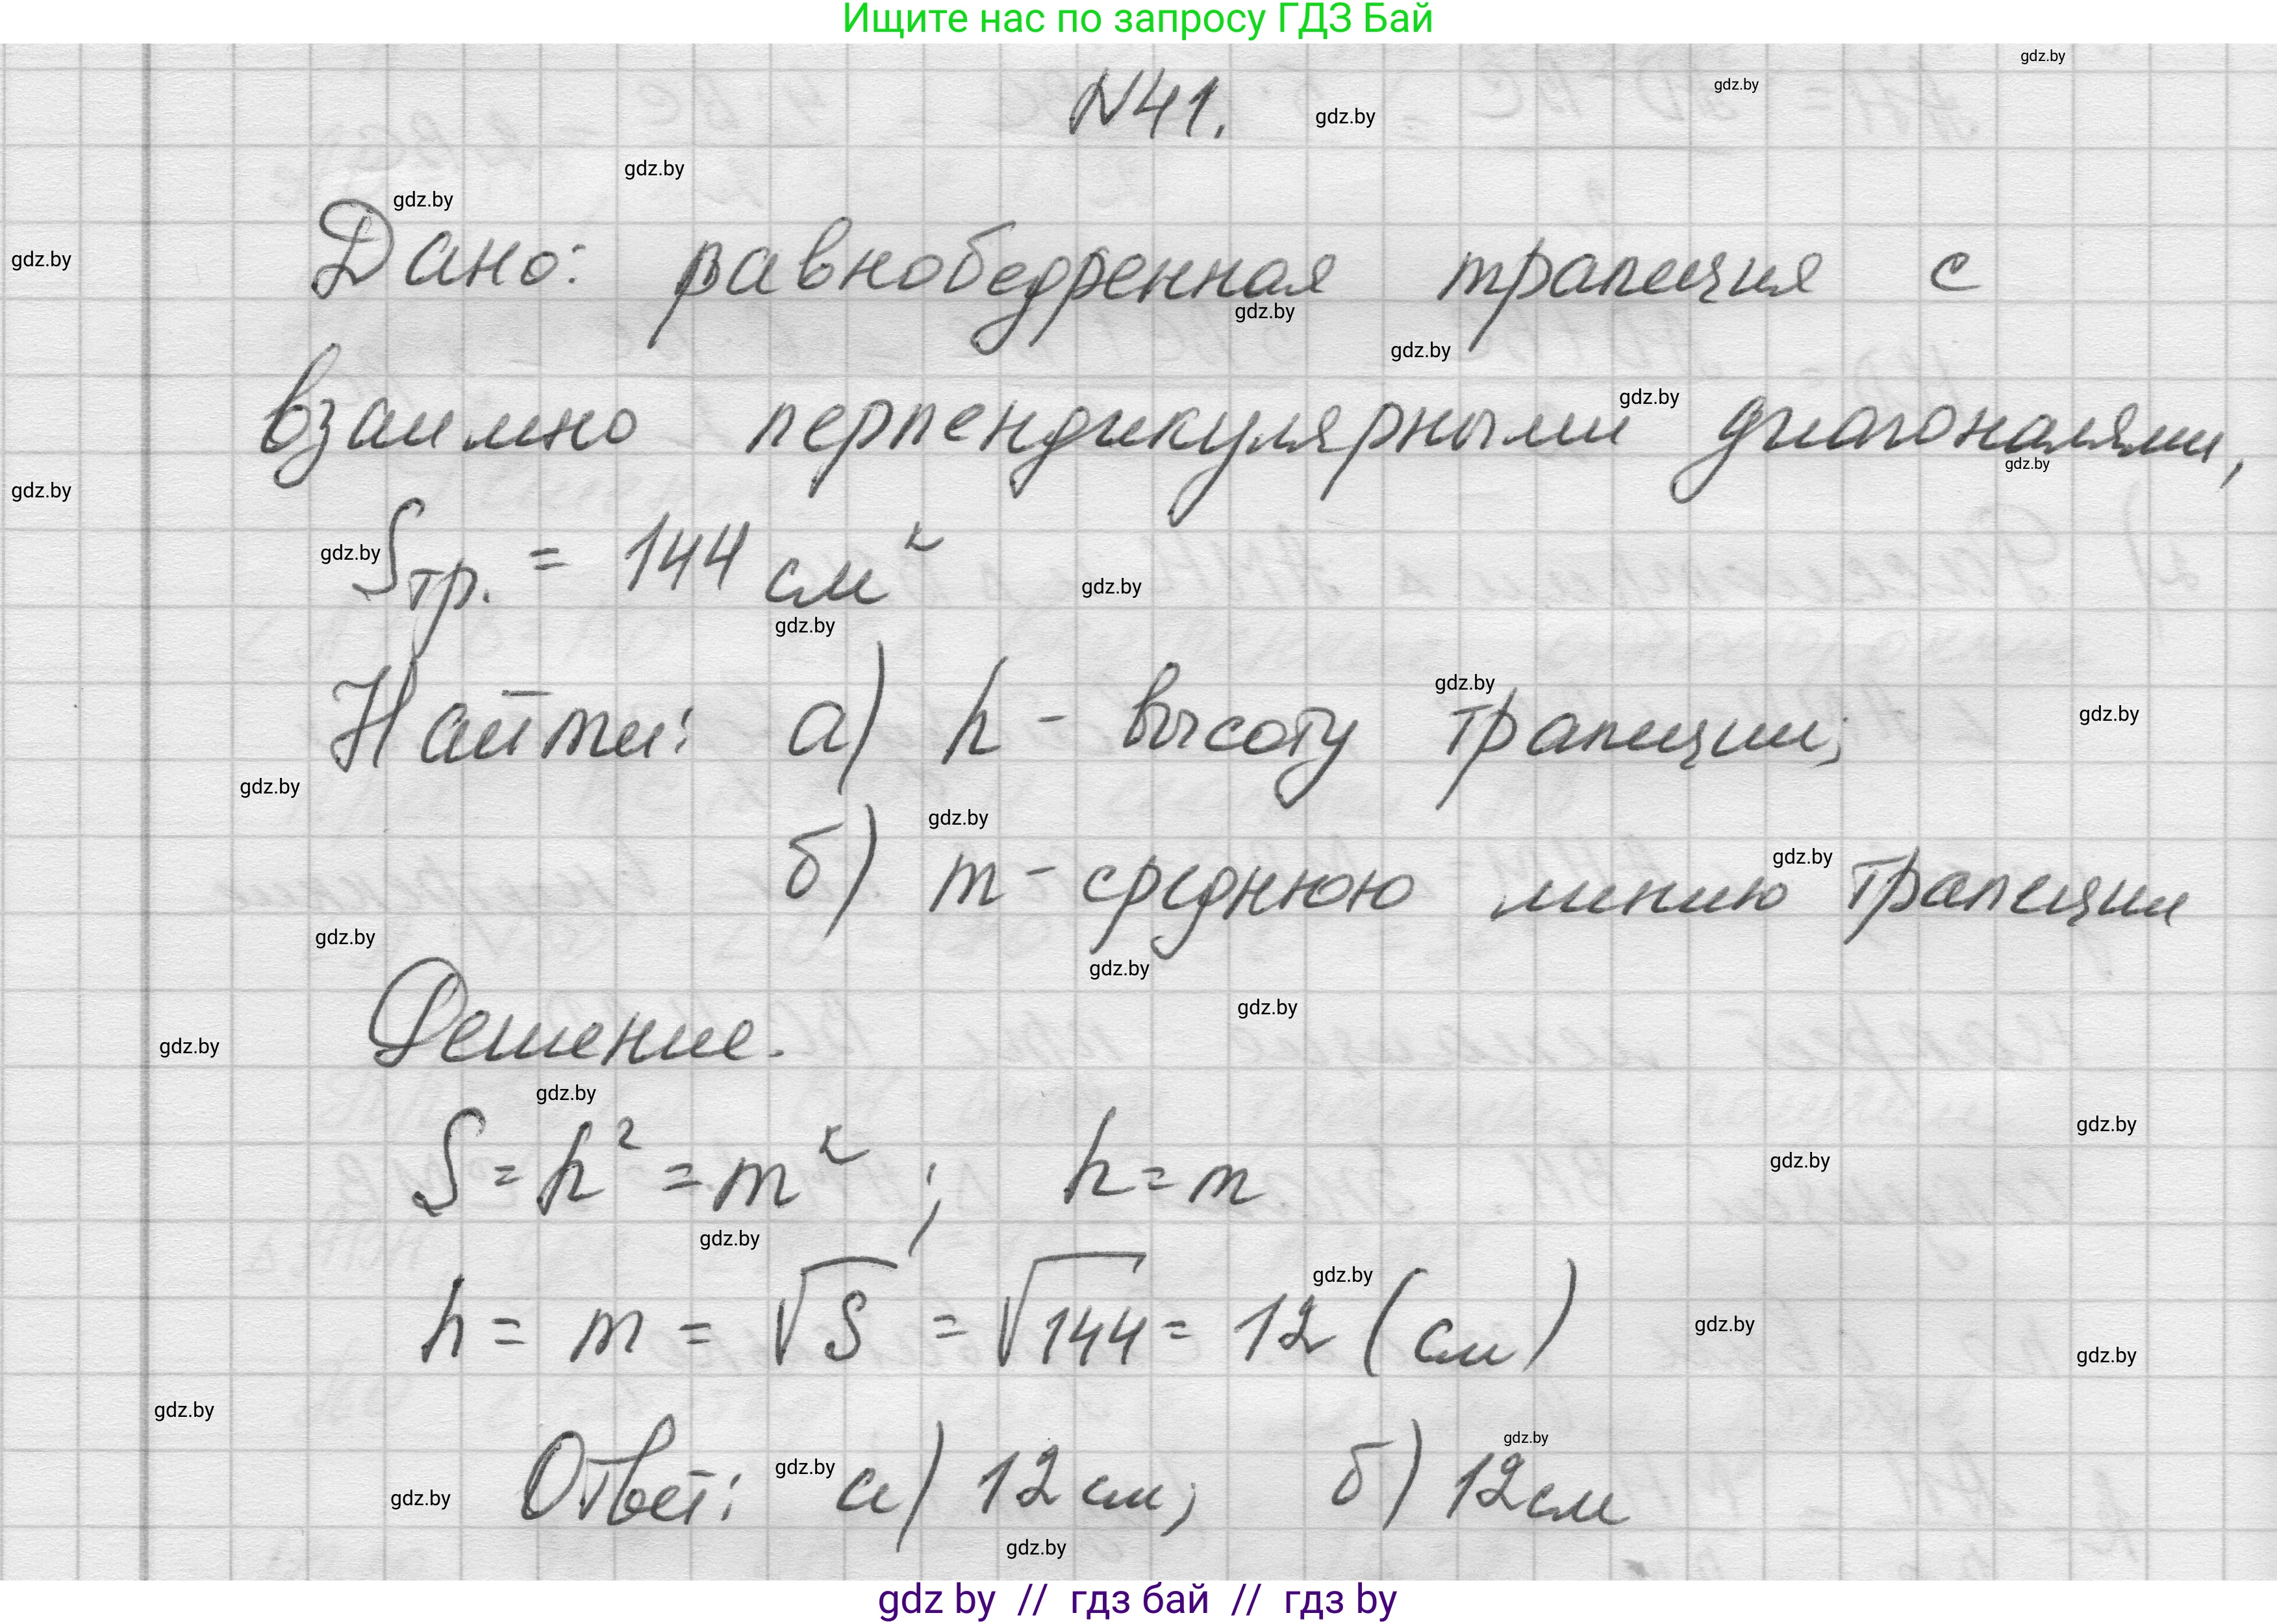 Ищите нас по запросу ГДЗ Бай
gdz.by
gdz.by
N41.
gdz.by
gdz.by
gdz.by
Дано: равнобедренная трапеция с
gdz.by
gdz.by
gdz.by
gdz.by
взаимно перпендикулярными диагоналями,
gdz.by
gdz.by
gdz.by
Sтр. = 144 см²
gdz.by
gdz.by
gdz.by
Найти: а) h - высоту трапеции;
gdz.by
gdz.by
gdz.by
gdz.by
б) m - среднюю линию трапеции
gdz.by
gdz.by
gdz.by
Решение.
gdz.by
gdz.by
gdz.by
S = h² = m² ; h = m
gdz.by
gdz.by
gdz.by
h = m = √S = √144 = 12 (см)
gdz.by
gdz.by
gdz.by
gdz.by
Ответ: а) 12 см; б) 12 см
gdz.by
gdz.by
gdz.by
gdz by // гдз бай // гдз by